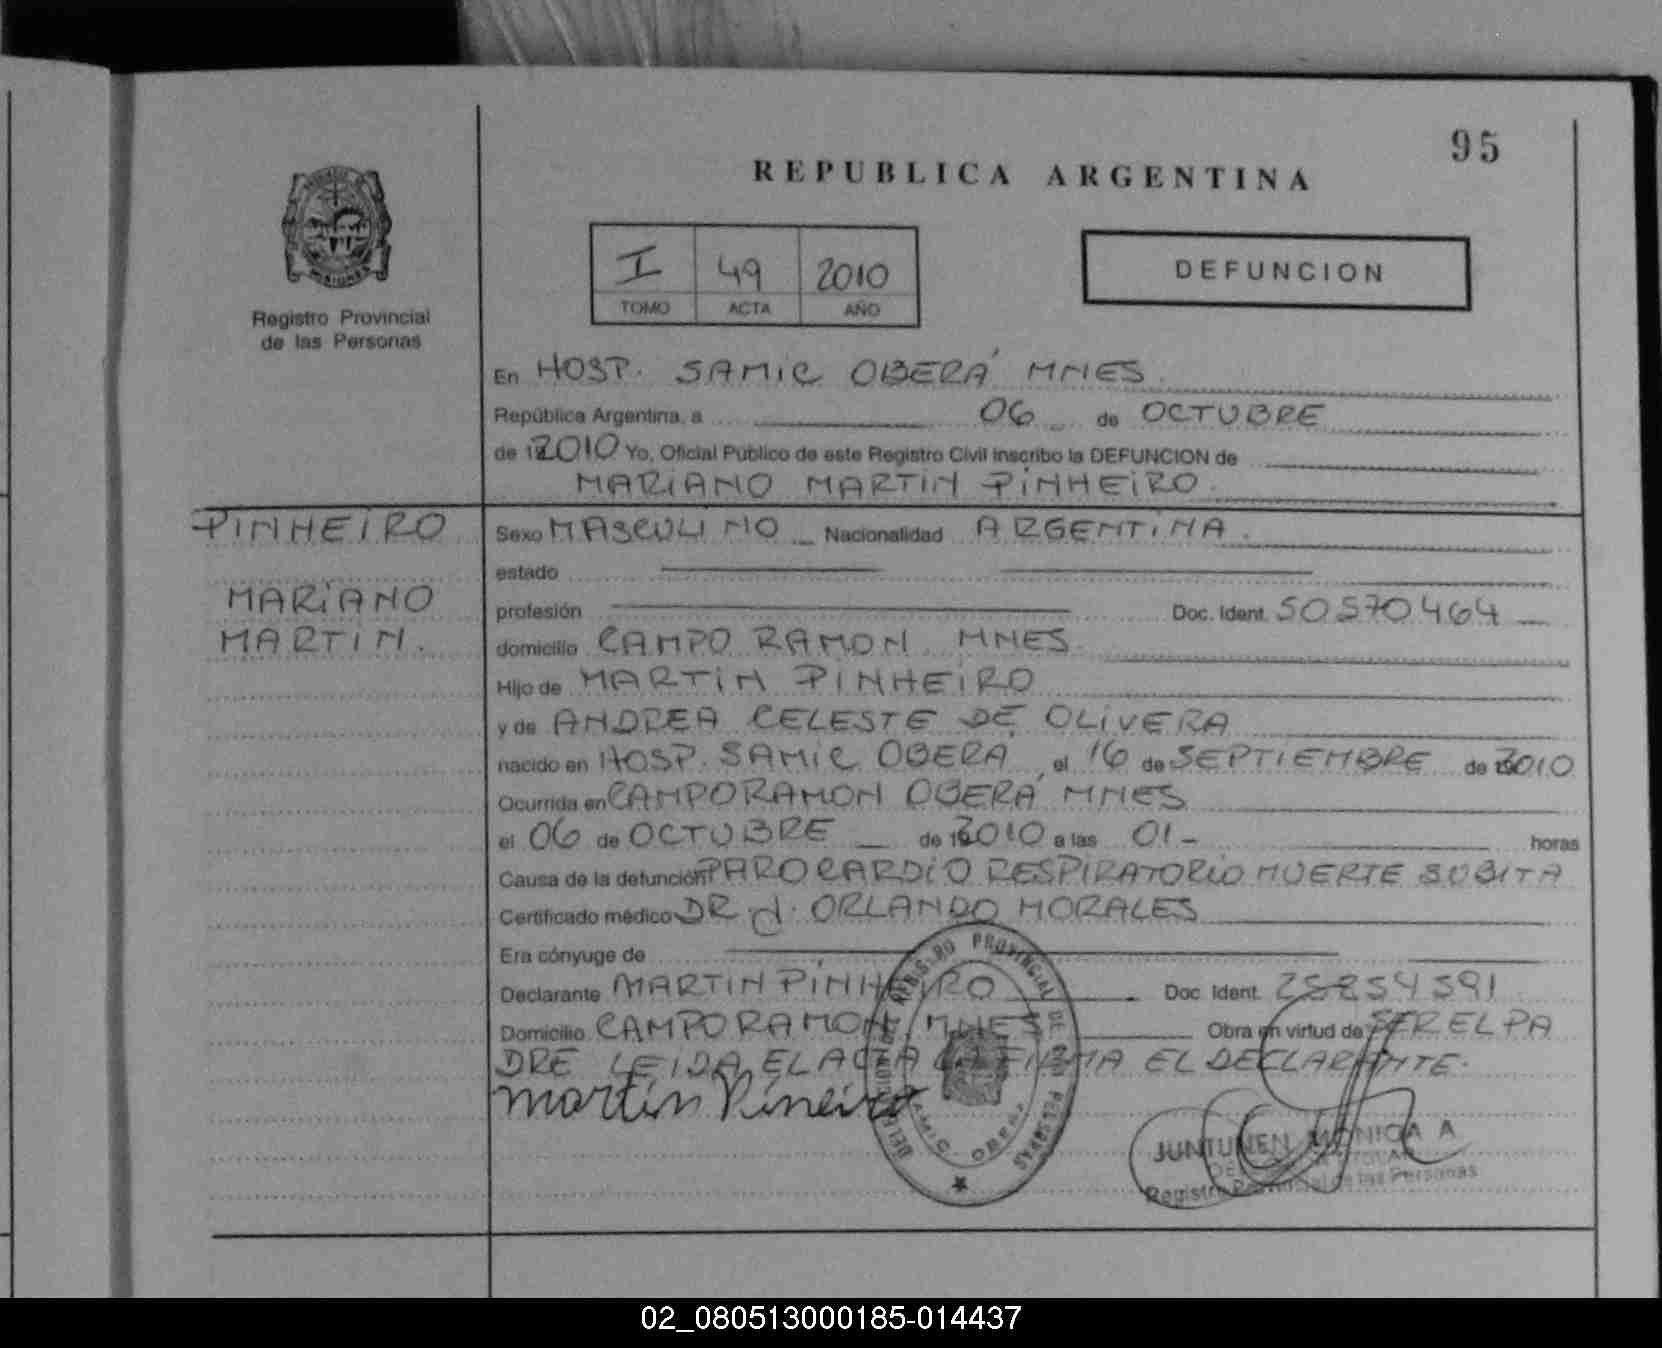 95
REPUBLICA ARGENTINA
I 49 2010
TOMO ACTA AÑO
DEFUNCION
MISIONES
Registro Provincial
de las Personas
En HOSP. SAMIC OBERÁ MNES.
República Argentina, a 06 de OCTUBRE
de 2010 Yo, Oficial Público de este Registro Civil inscribo la DEFUNCION de
MARIANO MARTIN PINHEIRO.
PINHEIRO
MARIANO
MARTIN.
Sexo MASCULINO Nacionalidad ARGENTINA.
estado
profesión Doc. Ident. 50570464
domicilio CAMPO RAMON MNES.
Hijo de MARTIN PINHEIRO
y de ANDREA CELESTE DE OLIVERA
nacido en HOSP. SAMIC OBERA, el 16 de SEPTIEMBRE de 2010
Ocurrida en CAMPO RAMON OBERÁ MNES
el 06 de OCTUBRE de 2010 a las 01- horas
Causa de la defunción PARO CARDIO RESPIRATORIO MUERTE SUBITA
Certificado médico DR. J. ORLANDO MORALES
Era cónyuge de
Declarante MARTIN PINHEIRO Doc. Ident. 25254591
Domicilio CAMPO RAMON, MNES Obra en virtud de SER EL PA
DRE LEIDA EL ACTA LA FIRMA EL DECLARANTE.
martin Pineiro
REGISTRO PROVINCIAL DE LAS PERSONAS
SAMIC OBERA
JUNTUNEN MONICA A
Registro Provincial de las Personas
02_080513000185-014437